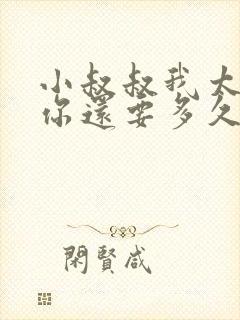 小叔叔我太
你還要多久
閑賢咸